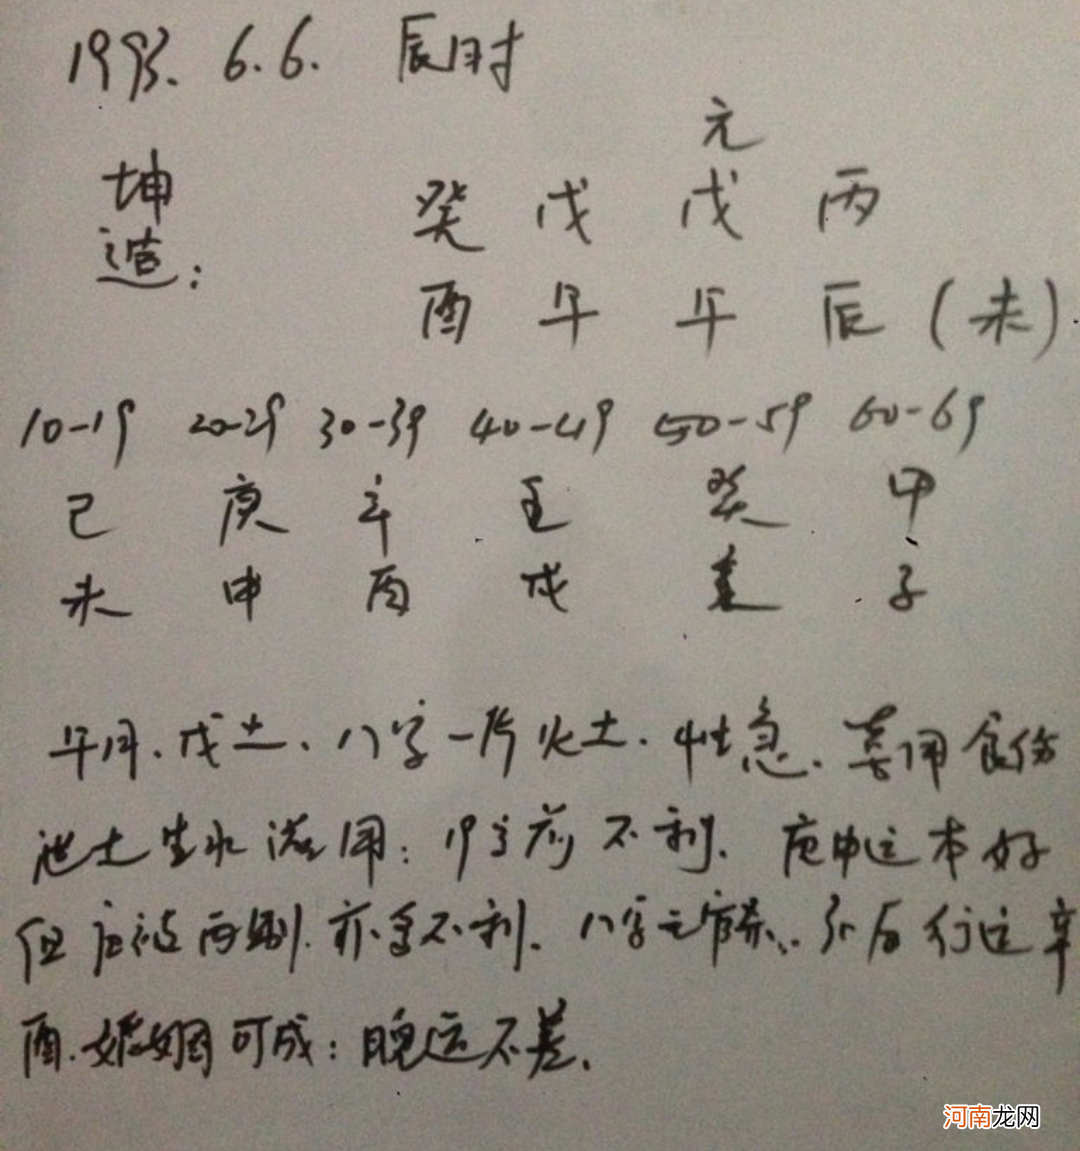 1993. 6.6. 辰时
元
坤 癸 戊 戊 丙
造： 酉 午 午 辰（未）
10-19 20-29 30-39 40-49 50-59 60-69
己 庚 辛 壬 癸 甲
未 申 酉 戌 亥 子
午月、戊土、八字一片火土、性急、喜用食伤
泄土生水滋用：19岁前不利、庚申运本好
但庚被丙制、亦多不利、八字无官杀、30后行运辛
酉、婚姻可成：晚运不差、
河南龙网